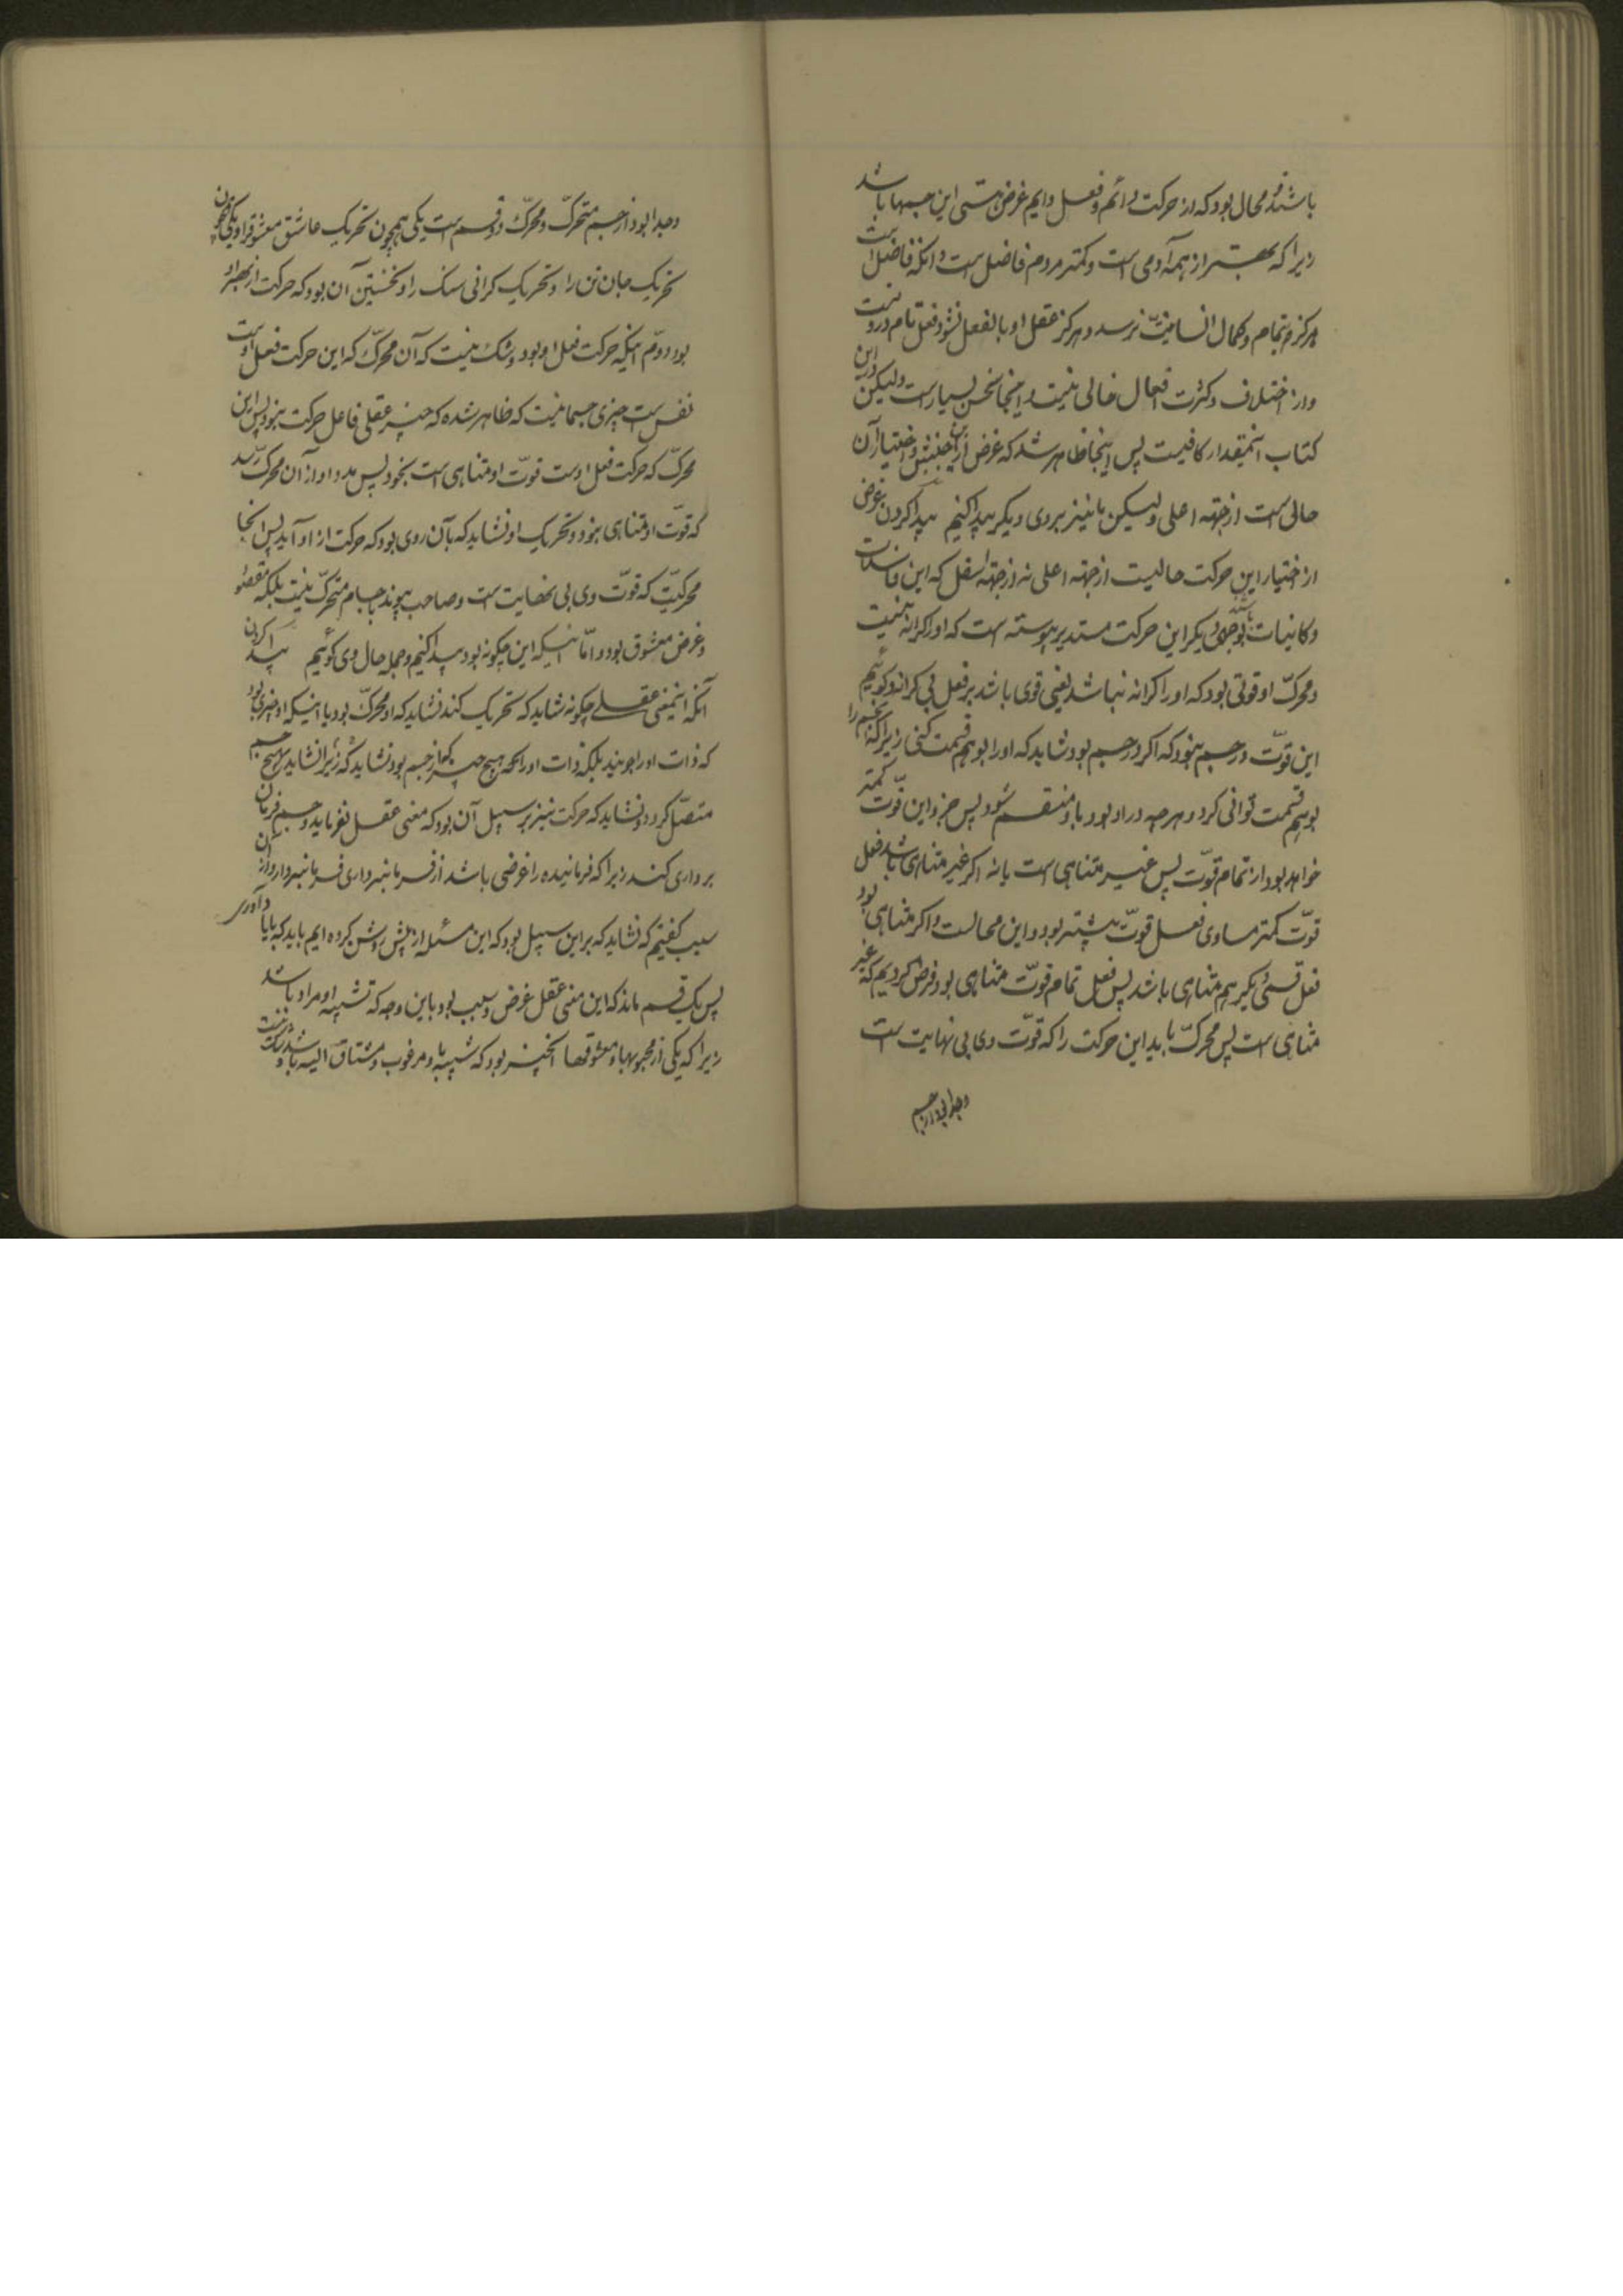 باشند و محال بود که از حرکت دائم و فعل دایم غرض هستی این جسمها باشد
زیرا که بهتر از همه آدمی است و کمتر مردم فاضل است و آنکه فاضل است
هرگز بتمام و کمال انسانیت نرسد و هرگز عقل او بالفعل نشود فعل تام درو نیست
و از اختلاف و کثرت افعال خالی نیست و اینجا سخن بسیار است ولیکن درین
کتاب اینمقدار کافیست پس اینجا ظاهر شد که غرض ازین جنبش و اختیار آن
حالی است از جهة اعلی ولیکن ما نیز بروی دیگر پیدا کنیم پیدا کردن غرض
از اختیار این حرکت حالیست از جهة اعلی نه از جهة اسفل که این فاسدات
و کاینات باشد بوجهی دیگر این حرکت مستدیر پیوسته است که او را کرانه نیست
و محرک او قوتی بود که او را کرانه نباشد یعنی قوی باشد بر فعل بی کرانه و گوئیم
این قوت در جسم نبود که اگر در جسم بود شاید که او را بوهم قسمت کنی زیرا که جسم را
بوهم قسمت توانی کرد و هرچه در او بود با او منقسم شود پس جزو این قوت کمتر
خواهد بود از تمام قوت پس غیر متناهی است یا نه اگر غیر متناهی باشد فعل
قوت کمتر مساوی فعل قوت بیشتر بود و این محالست و اگر متناهی بود
فعل قسمی دیگر هم متناهی باشد پس فعل تمام قوت متناهی بود و فرض کردیم که غیر
متناهی است پس محرک باید این حرکت را که قوت وی بی نهایت است
و جدا بود از جسم
و جدا بود از جسم متحرک و محرک دو قسم است یکی همچون تحریک عاشق معشوق را و یکی چون
تحریک جان تن را و تحریک گرانی سنگ را و نخستین آن بود که حرکت از بهر او
بود دوم اینکه حرکت فعل او بود و شک نیست که آن محرک که این حرکت فعل اوست
نفس است چیزی جسمانیت که ظاهر شده که چیز عقلی فاعل حرکت نبود پس این
محرک که حرکت فعل اوست قوت او متناهی است بخود پس مدد او از آن محرک رسد
که قوت او متناهی نبود و تحریک او نشاید که بآن روی بود که حرکت از او آید پس آنجا
محرکیست که قوت وی بی نهایت است و صاحب پیوند باجسام متحرک نیست بلکه مقصود
و غرض معشوق بود و اما اینکه این چگونه بود پیدا کنیم و جمله حال وی گوئیم پیدا کردن
آنکه اینمعنی عقلی چگونه شاید که تحریک کند نشاید که او محرک بود با اینکه او چیزی بود
که ذات او را جویند بلکه ذات او را که هیچ چیز از جسم بود نشاید که زیرا نشاید که هیچ جسم
متصل گردد و نشاید که حرکت نیز بر سبیل آن بود که معنی عقل بفرماید و جسم فرمان
برداری کند زیرا که فرماینده را غرضی باشد از فرمانبرداری فرمانبردار و از آن
سبب گفتیم که نشاید که براین سبیل بود که این مسئله از پیش روشن کرده ایم باید که با یاد آوری
پس یک قسم ماند که این معنی عقل غرض و سبب بود باین وجه که تشبه او مراد باشد
زیرا که یکی از محبوبها و معشوقها آنچیز بود که شبیه با و مرغوب و مشتاق الیه باشد